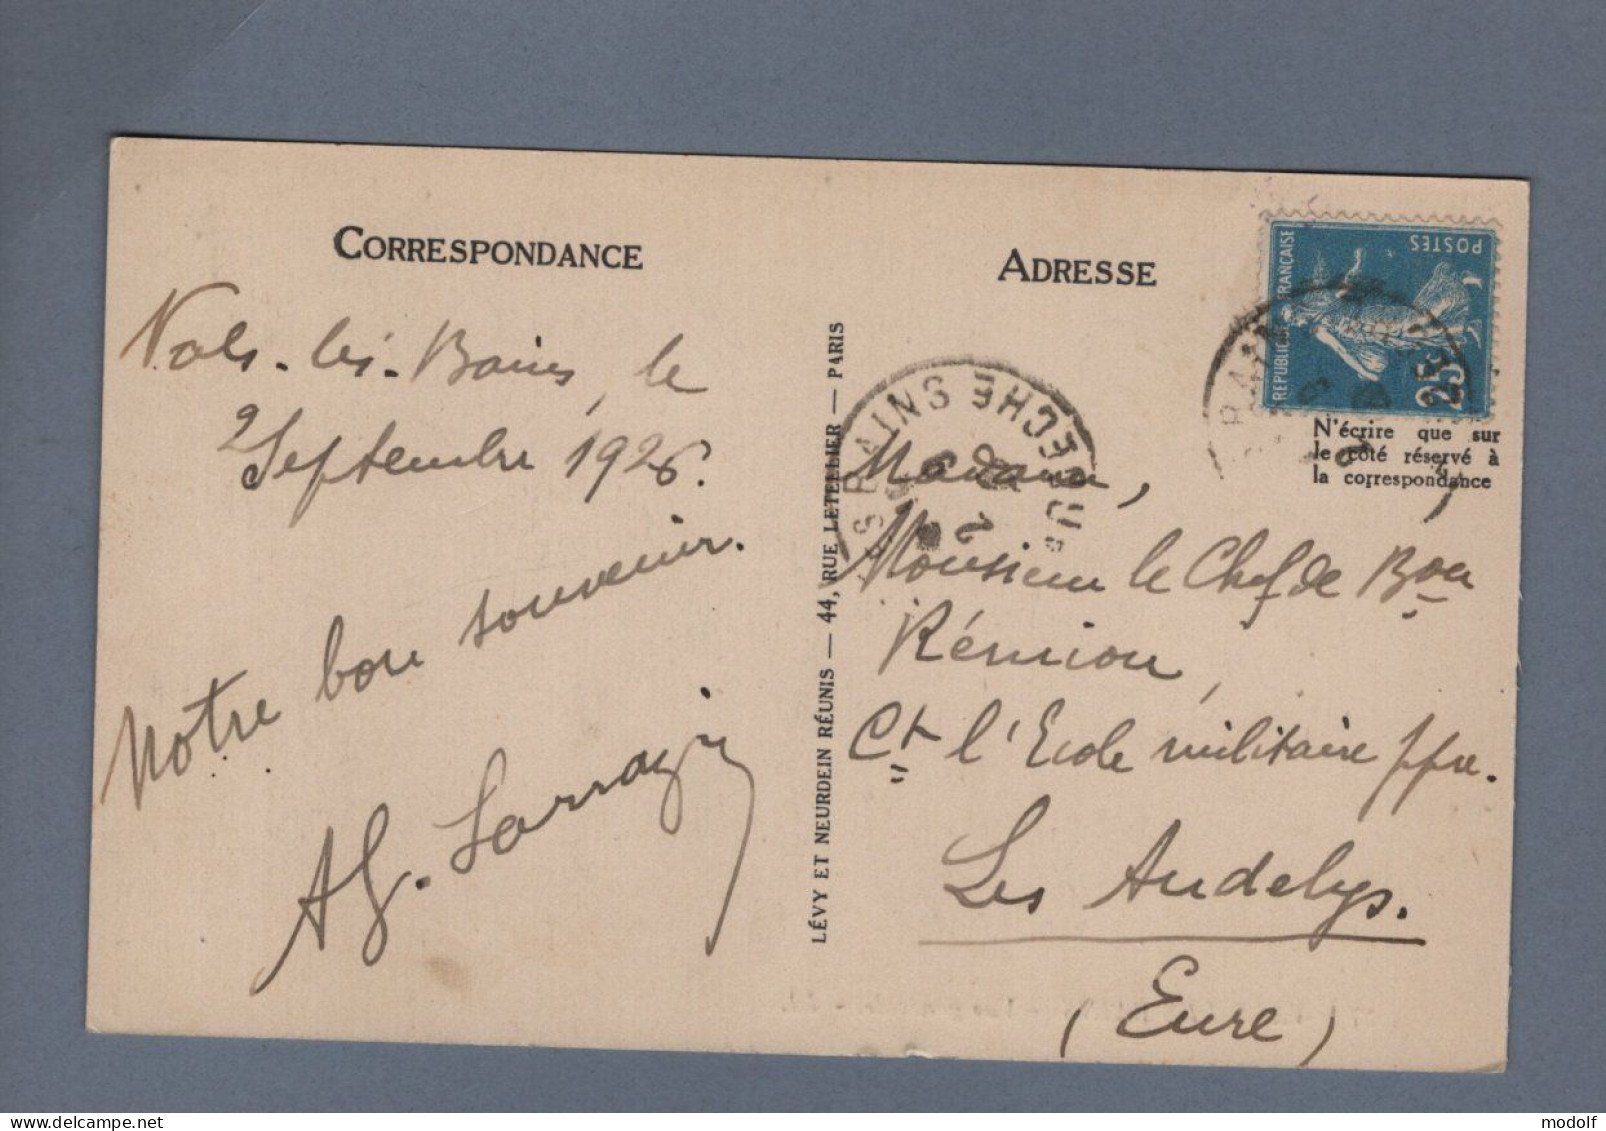 CORRESPONDANCE
Vals-les-Bains, le
2 Septembre 1926.
Notre bon souvenir.
AG. Sarrazin
LÉVY ET NEURDEIN RÉUNIS — 44, RUE LETELLIER — PARIS
ADRESSE
REPUBLIQUE FRANCAISE
POSTES
25c
N'écrire que sur
le côté réservé à
la correspondance
BAINS
ARDECHE
Madame,
Monsieur le Chef de Bon
Réunion,
Ct l'Ecole militaire ppre.
Les Andelys.
(Eure)
modolf